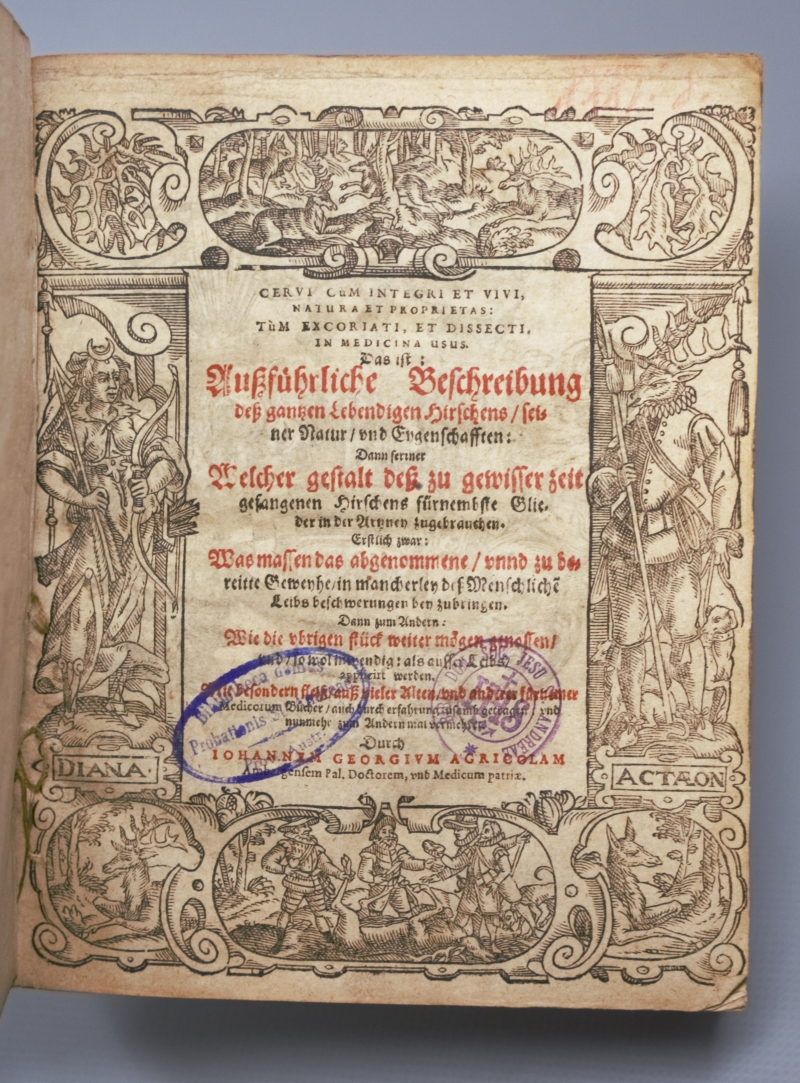 CERVI CuM INTEGRI ET VIVI,
NATURA ET PROPRIETAS:
TùM EXCORIATI, ET DISSECTI,
IN MEDICINA USUS.
Das ist:
Außführliche Beschreibung
deß gantzen Lebendigen Hirschens / sei-
ner Natur / vnd Eygenschafften:
Dann ferner
Welcher gestalt deß zu gewisser zeit
gefangenen Hirschens fürnembste Glie-
der in der Artzney zugebrauchen.
Erstlich zwar:
Was massen das abgenommene / vnnd zu be-
reitte Geweyhe / in mancherley deß Menschlichē
Leibs beschwerungen bey zubringen.
Dann zum Andern:
Wie die vbrigen stück weiter mögen genossen /
vnd / so wol inwendig: als ausser Leibs
applicirt werden.
Mit besondern fleiß / auß vieler Alten / vnd anderer fürnemer
Medicorum Bücher / auch durch erfahrung zusamb getragen / vnd
nunmehr zum Andern mal vermehret
Durch
IOHANNEM GEORGIVM AGRICOLAM
gensem Pal. Doctorem, vnd Medicum patriæ.
DIANA.
ACTÆON
Probationis
JESU
ANDREAE